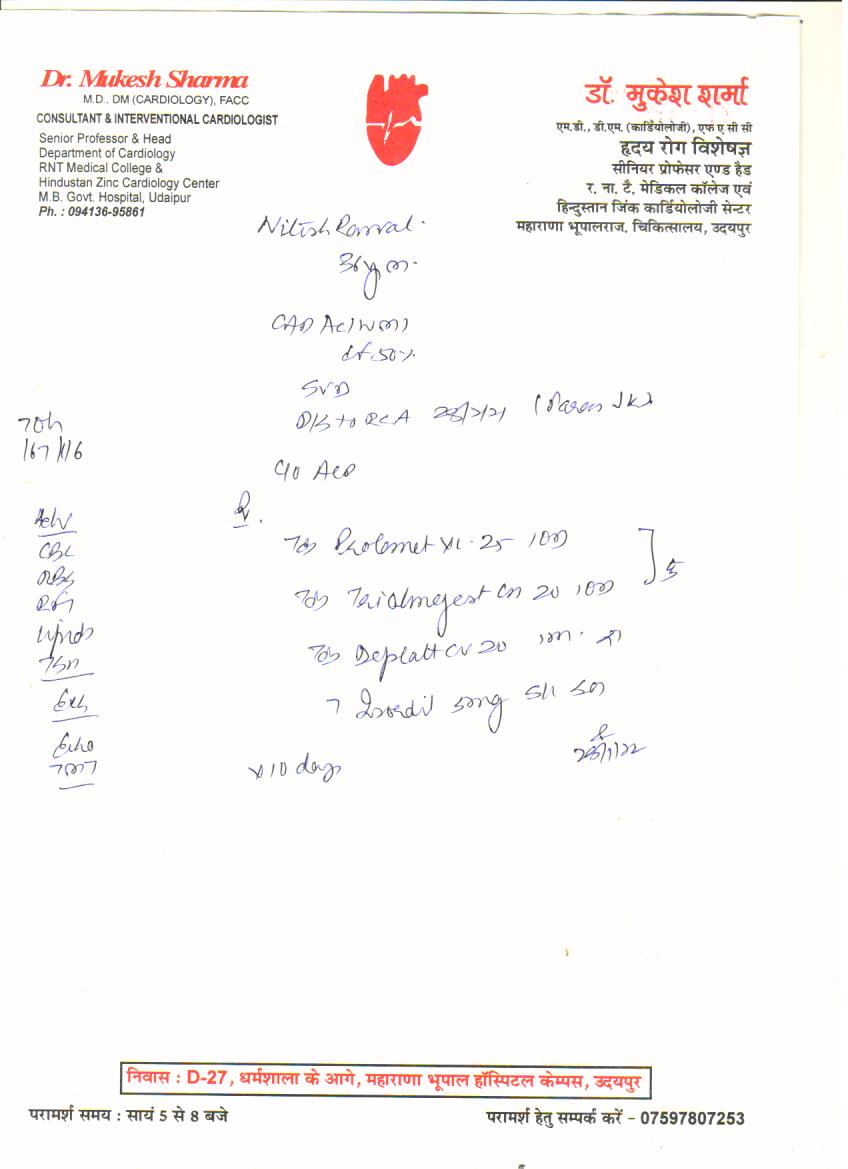 Dr. Mukesh Sharma
M.D., DM (CARDIOLOGY), FACC
CONSULTANT & INTERVENTIONAL CARDIOLOGIST
Senior Professor & Head
Department of Cardiology
RNT Medical College &
Hindustan Zinc Cardiology Center
M.B. Govt. Hospital, Udaipur
Ph. : 094136-95861
डॉ. मुकेश शर्मा
एम.डी., डी.एम. (कार्डियोलोजी), एफ ए सी सी
हृदय रोग विशेषज्ञ
सीनियर प्रोफेसर एण्ड हैड
र. ना. टै. मेडिकल कॉलेज एवं
हिन्दुस्तान जिंक कार्डियोलोजी सेन्टर
महाराणा भूपालराज. चिकित्सालय, उदयपुर
Nitish
36y m.
CAD
Ef 50%
SVD
to RCA
C/o
Adv
CBC
RBS
RFT
Lipids
Echo
TMT
Rx.
Tab XL 25
Tab Triolmezest CH 20
Tab Deplatt CV 20
T Isordil 5mg S/L
28/1/22
x 10 days
निवास : D-27, धर्मशाला के आगे, महाराणा भूपाल हॉस्पिटल केम्पस, उदयपुर
परामर्श समय : सायं 5 से 8 बजे
परामर्श हेतु सम्पर्क करें – 07597807253